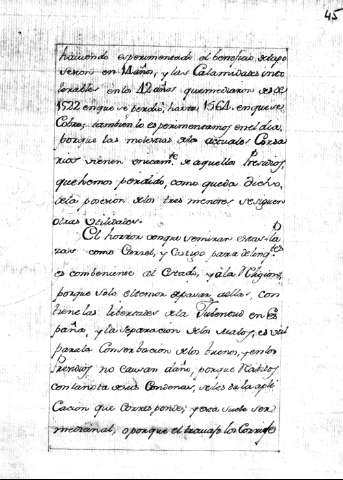 45
haviendo esperimentado el beneficio, de la po
sesion en 14 años, y las Calamidades into
lerables en los 42 años que mediaron desde
1522 en que se perdió, hasta 1564. en que se
Cobró; tambien lo esperimentamos en el dia,
porque las molestias de los actuales Corsa
rios vienen unicamte. de aquellos Presidios,
que hemos perdido, como queda dicho,
de la posesion de los tres menores se siguen
otras utilidades.
El horror con que se miran estas Pla
zas como Carcel, y Castigo para delinqtes.
es combeniente al Estado, y a la Religion,
porque solo el temor de pasar a ellas, con
tiene las libertades de la Jubentud en Es
paña, y la separacion de los malos, es util
para la Conserbacion de los buenos, y en los
Presidios no causan daño, porque
con la nota de sus Condenas, se les da la apli
cacion que corresponde; y esta suele ser
medicinal, o porque el travajo los Corrije